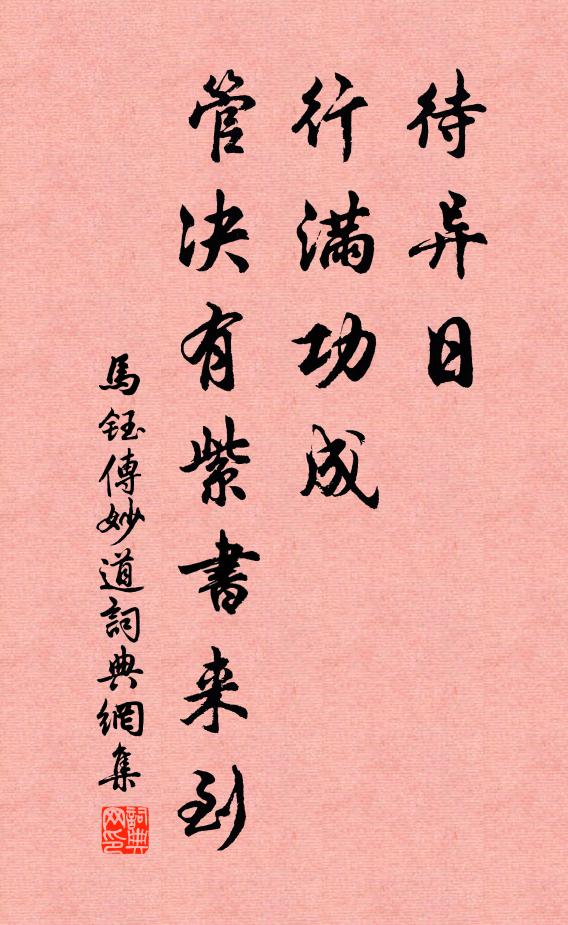 待异日
行满功成
管决有紫書来到
馬鈺傳妙道詞典網集
詞典网印